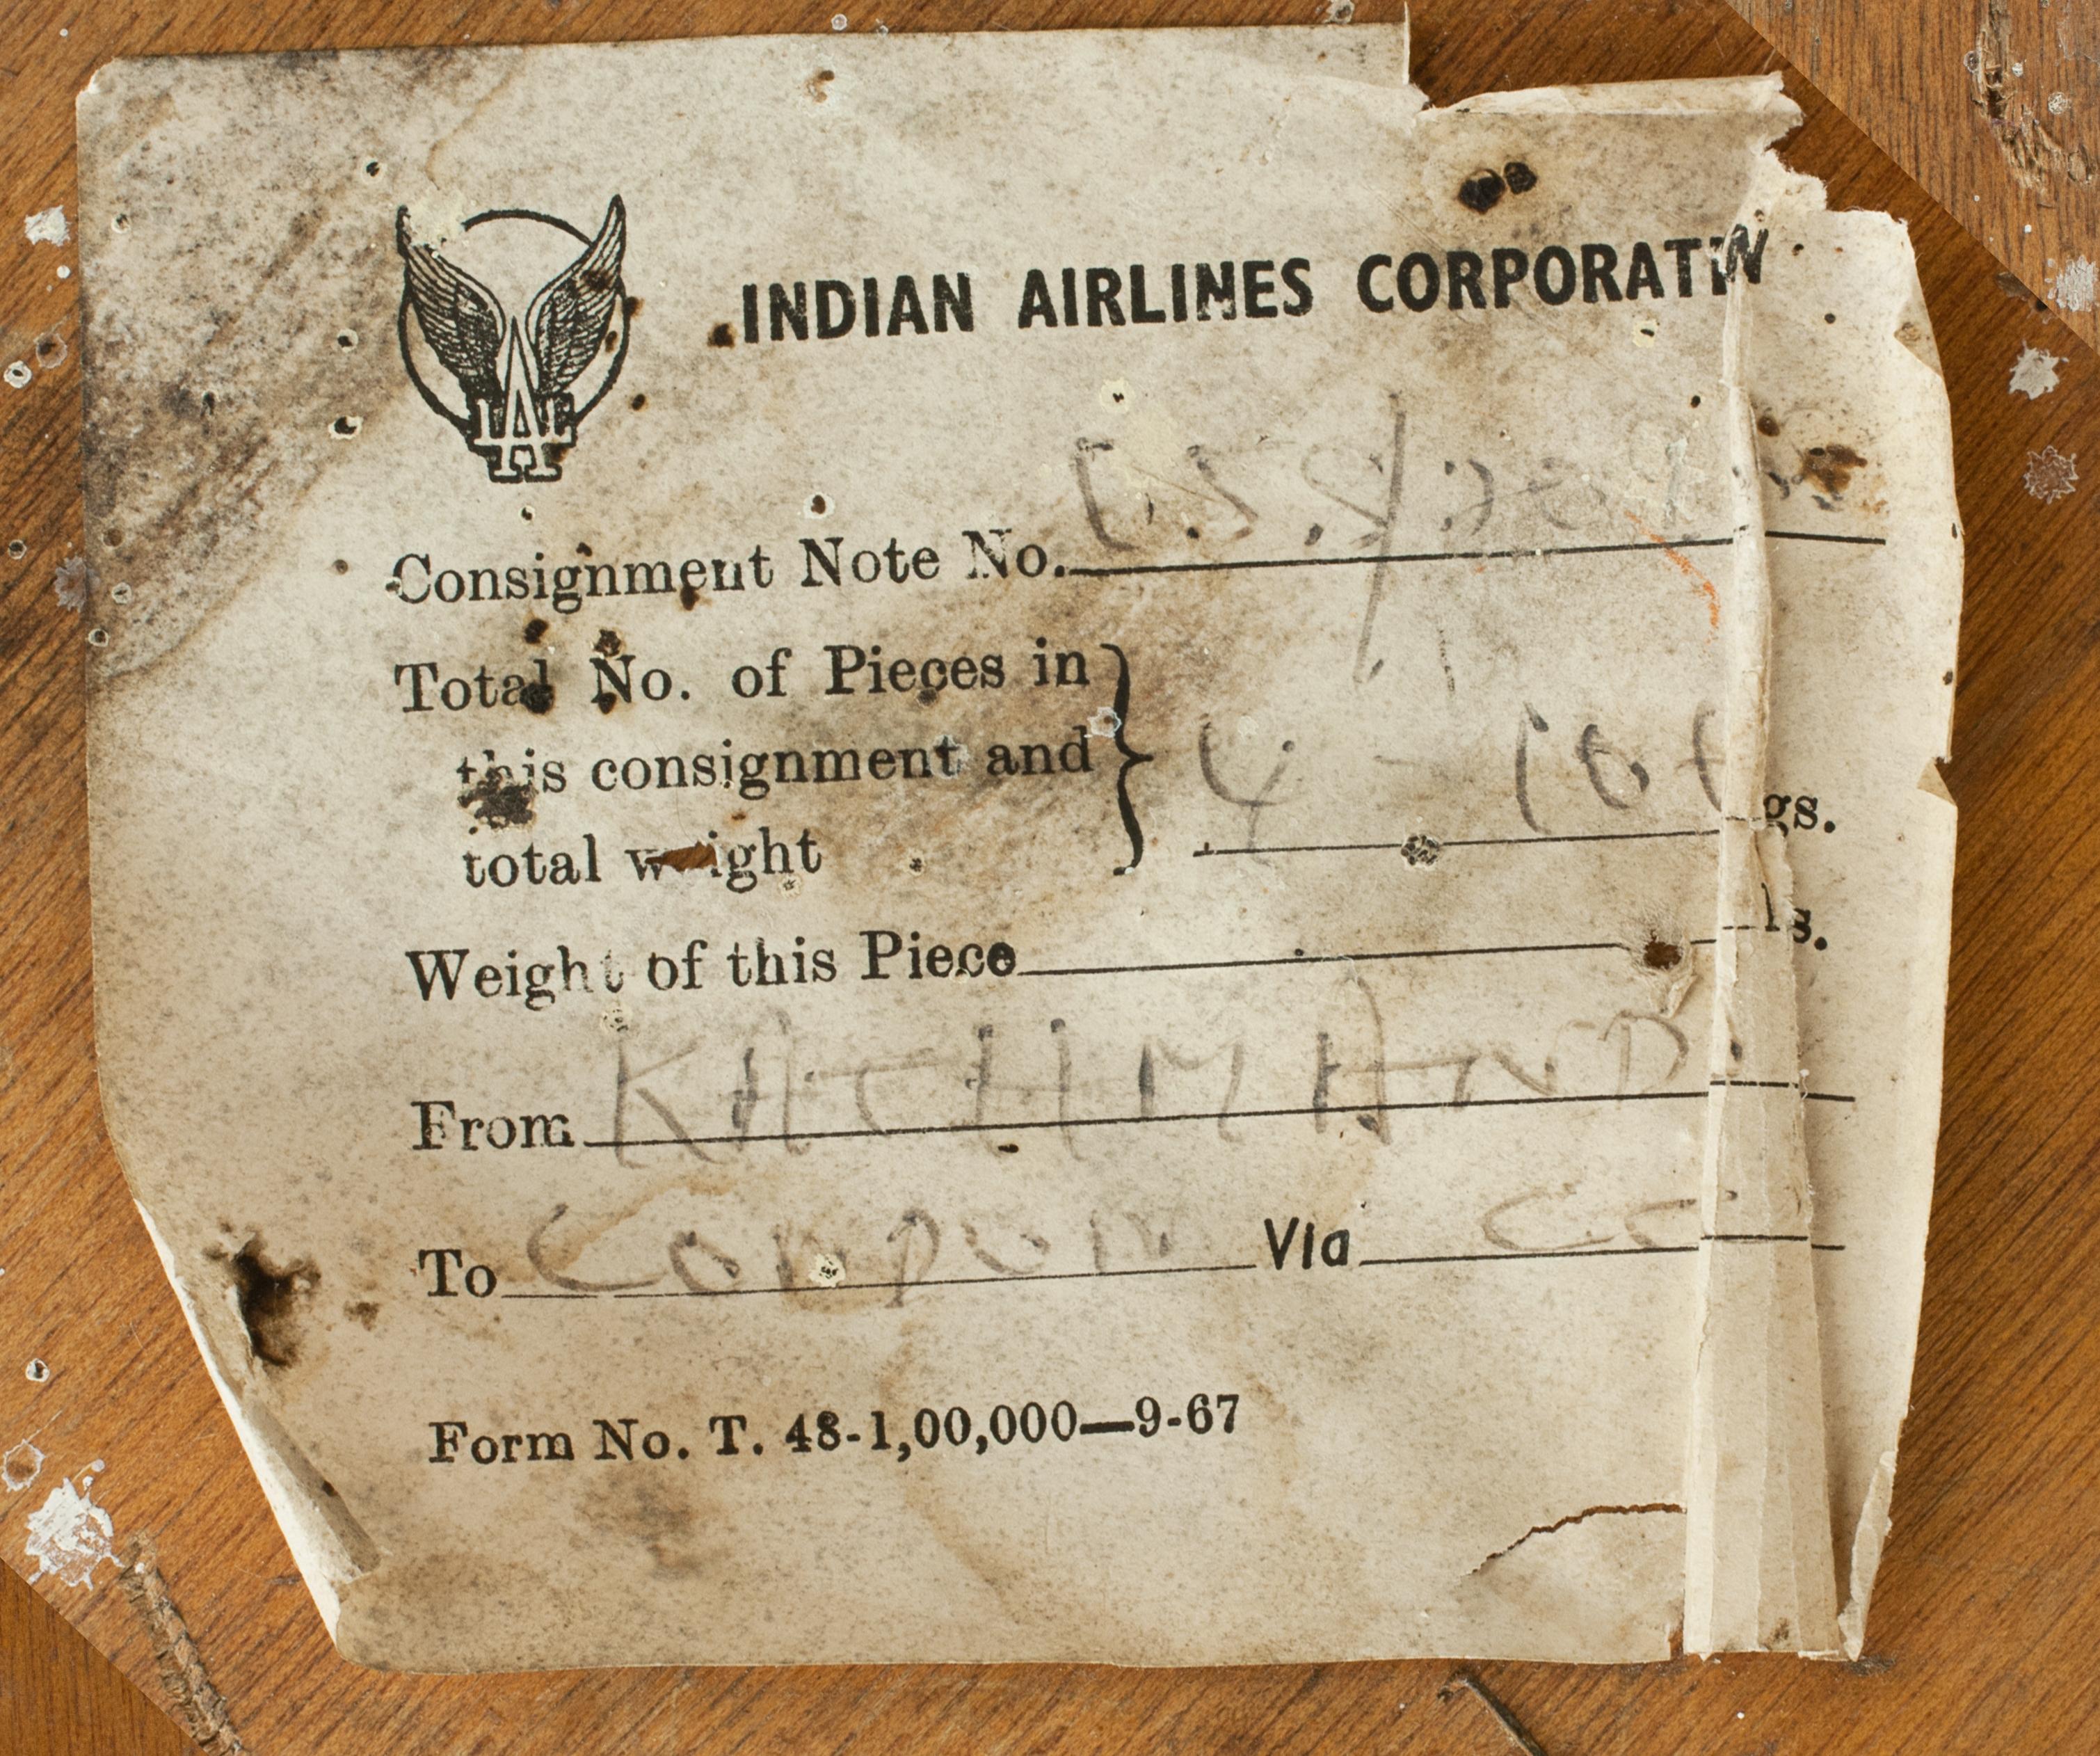 IAC
INDIAN AIRLINES CORPORATIN
Consignment Note No.
Total No. of Pieces in
this consignment and
4 - 107 gs.
total weight
Weight of this Piece s.
From KATHMAND
To LONDON Via
Form No. T. 48-1,00,000—9-67